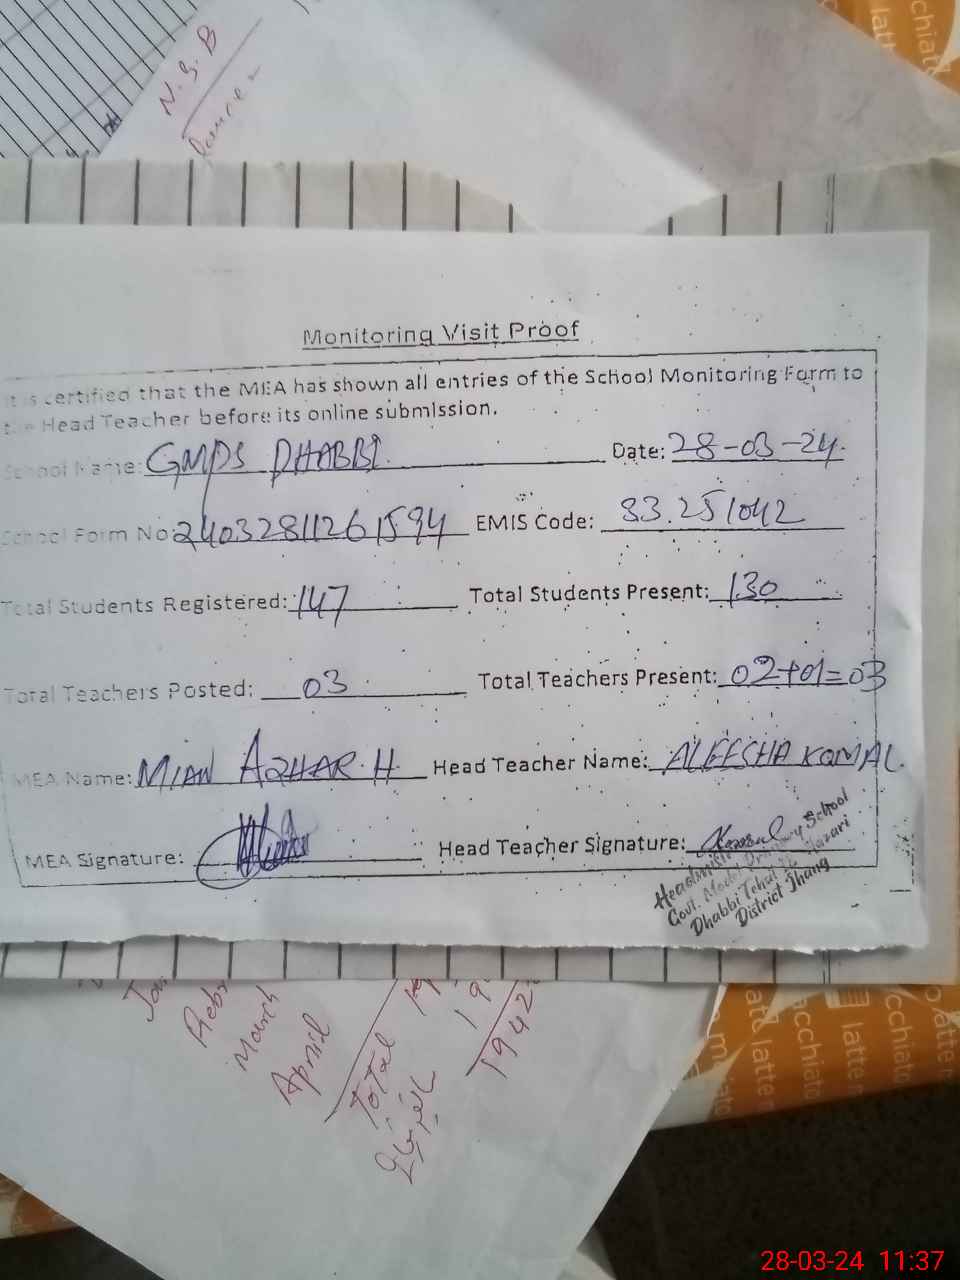 N.S.B
Monitoring Visit Proof
It is certified that the MEA has shown all entries of the School Monitoring Form to
the Head Teacher before its online submission.
School Name: GMPS DHABBI. Date: 28-03-24.
School Form No: 24032811261594 EMIS Code: 33.251042
Total Students Registered: 147 Total Students Present: 130
Total Teachers Posted: 03 Total Teachers Present: 02+01=03
MEA Name: MIAN AZHAR.H. Head Teacher Name: ALEESHA KOMAL.
MEA Signature: Head Teacher Signature:
Headmistress
Govt. Model Primary School
Dhabbi Tehsil 18 Hazari
District Jhang
March
April
Total
1942
latte
28-03-24 11:37